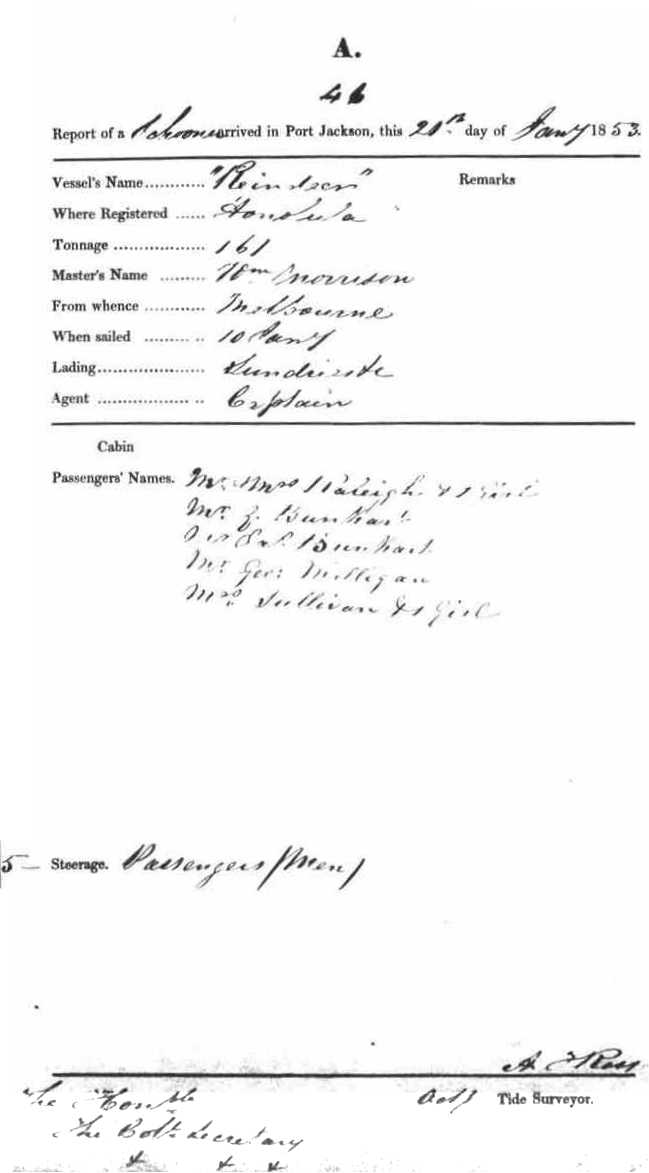 A.
46
Report of a Schooner arrived in Port Jackson, this 20th day of Jany 1853.
Vessel's Name ............ "Reindeer" Remarks
Where Registered ...... Honolula
Tonnage .................. 161
Master's Name ......... Wm Morrison
From whence ............ Melbourne
When sailed ......... .. 10 Jany
Lading...................... Sundries &c
Agent .................. .. Captain
Cabin
Passengers' Names. Mr. Mrs Raleigh & 1 Girl
Mr. Z. Bunkart
Bunkart
Mr. Geo: Milligan
Mrs. Sullivan & 1 Girl
5 — Steerage. Passengers / Men /
A Ross
The Honble Actg Tide Surveyor.
The Col. Secretary